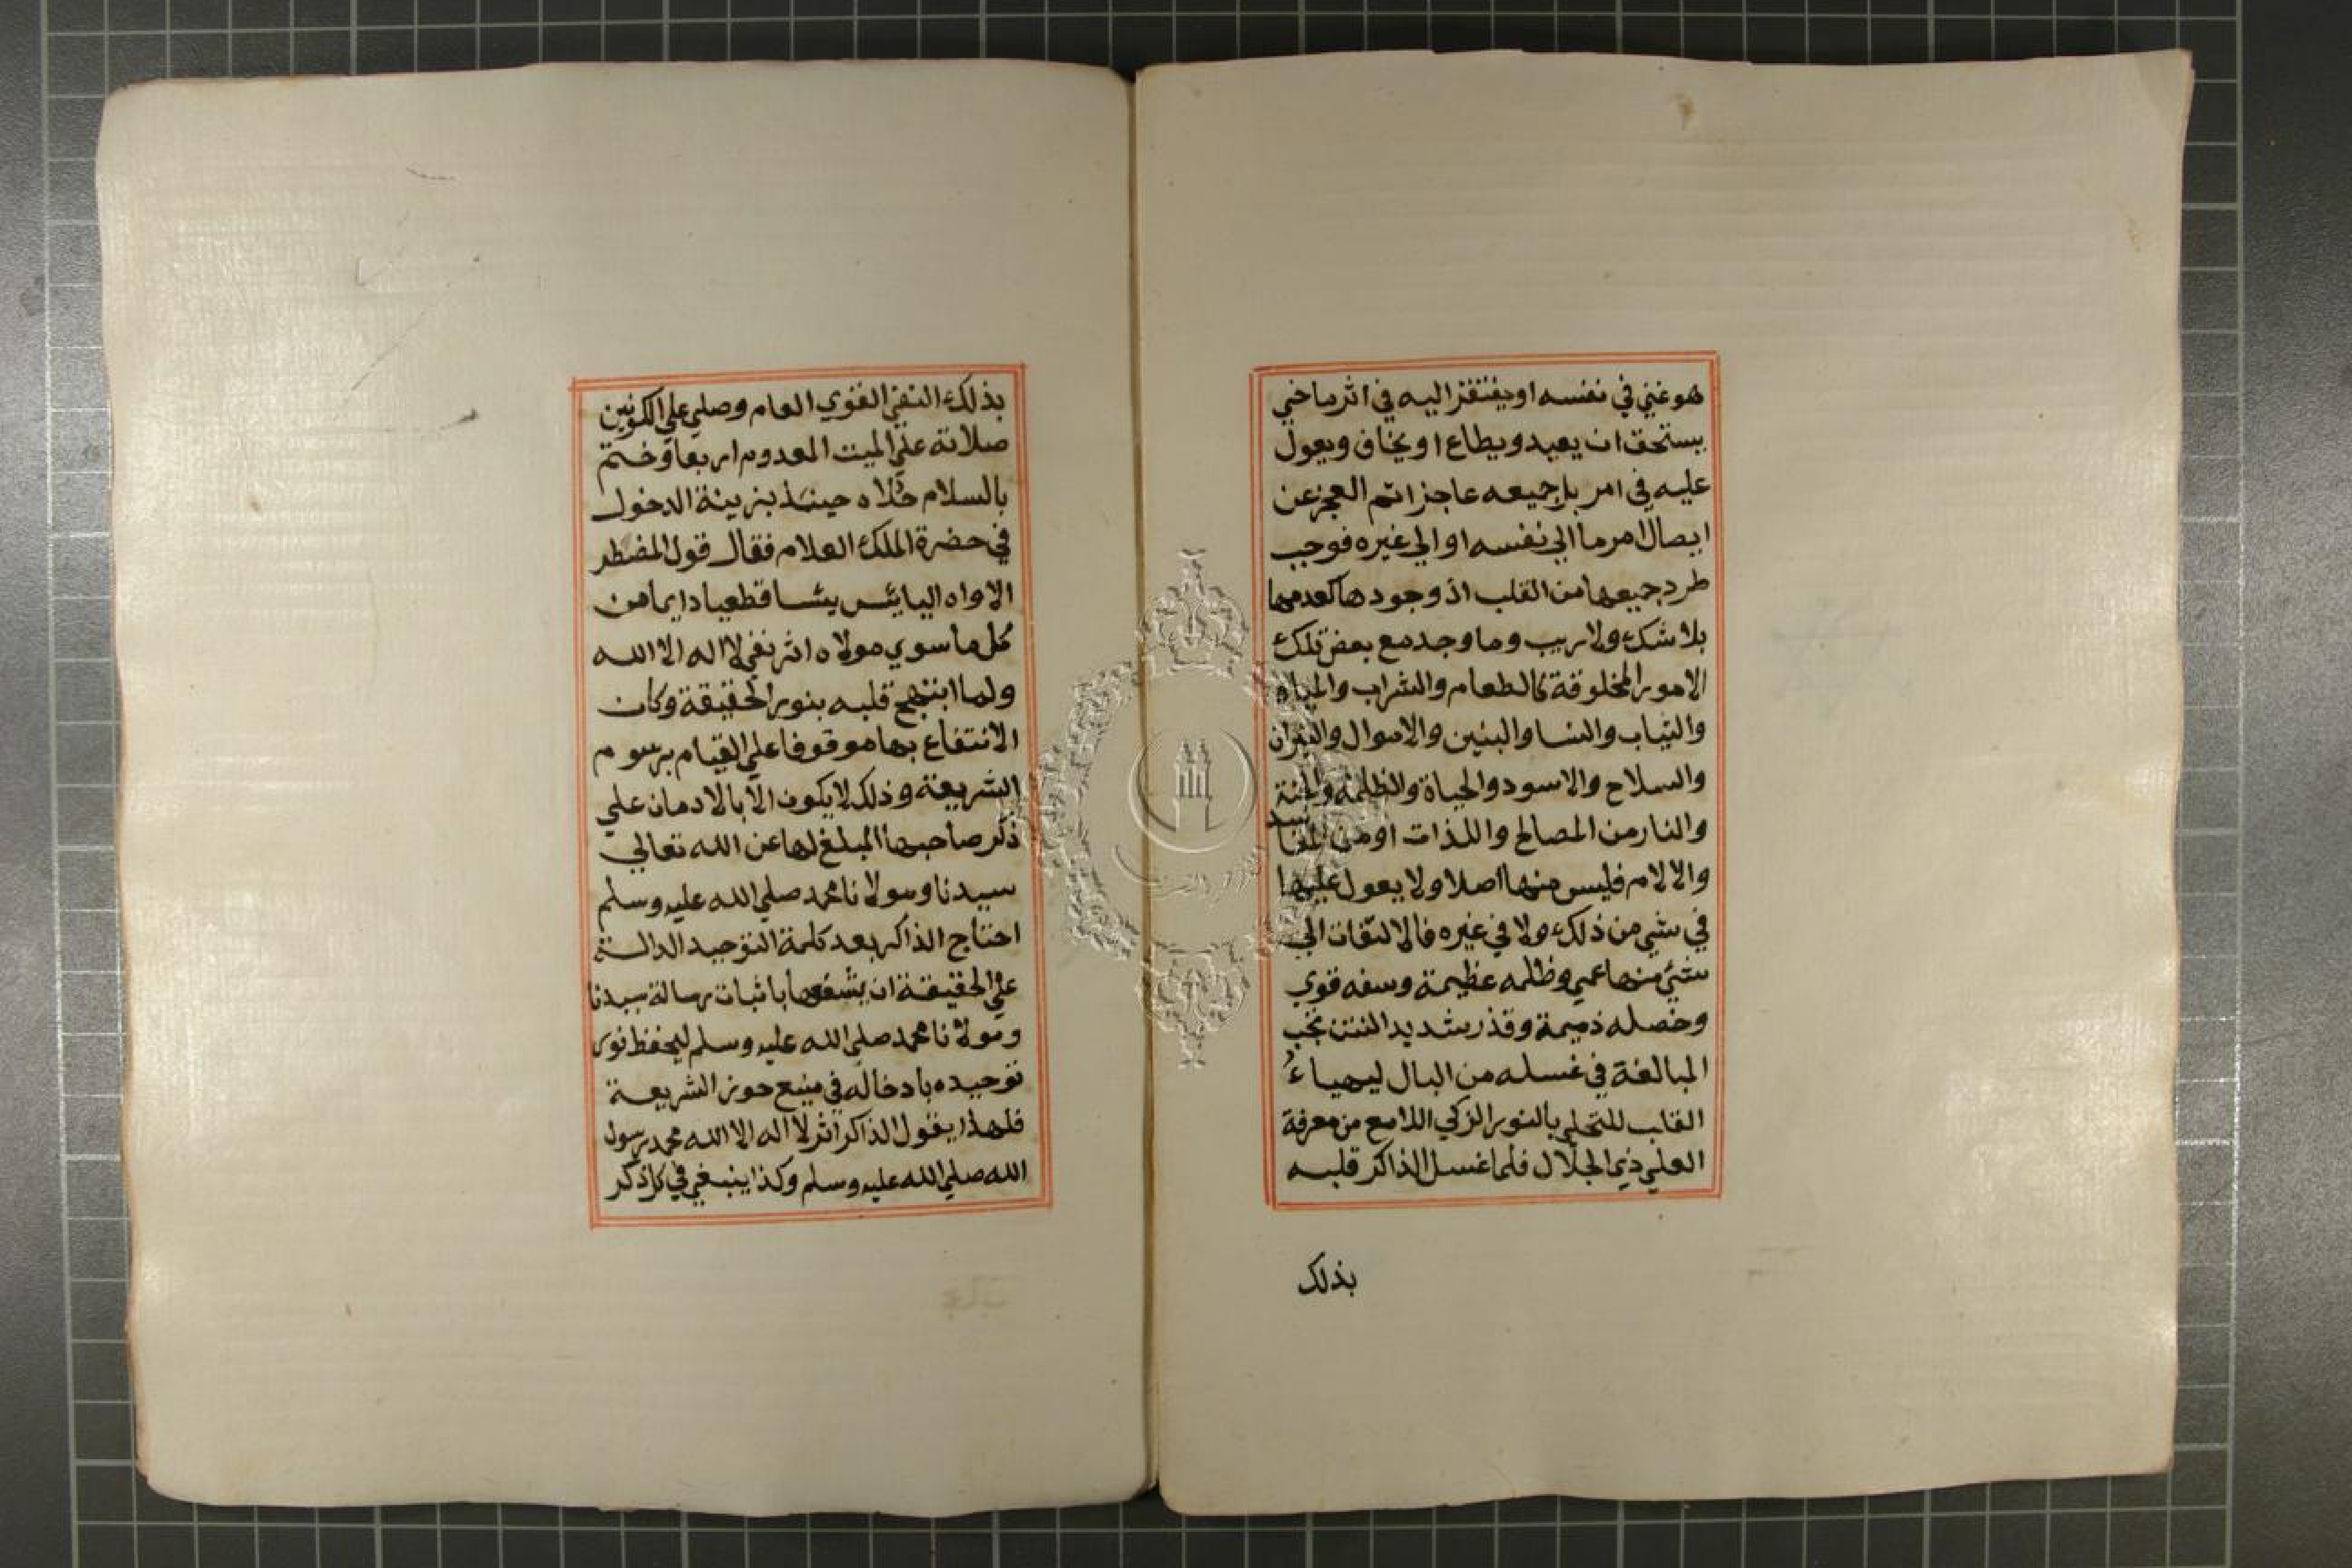 هو غني في نفسه او يفتقر اليه في اثر ما حتي
يستحق ان يعبد ويطاع او يخاف ويعول
عليه في امر بل جميعه عاجز اتم العجز عن
ايصال امر ما الي نفسه او الي غيره فوجب
طرد جميعها من القلب اذ وجودها كعدمها
بلا شك ولا ريب وما وجد مع بعض تلك
الامور المخلوقة كالطعام والشراب والمياه
والثياب والنسا والبنين والاموال والنيران
والسلاح والاسود والحياة والظلمة والجنة
والنار من المصالح واللذات او من المفاسد
والالام فليس منها اصلا ولا يعول عليها
في شي من ذلك ولا في غيره فالالتفات الي
شيء منها عمي وظلمه عظيمة وسفه قوي
وخصله ذميمة وقذر شديد النتن تجب
المبالغة في غسله من البال ليهياء
القلب للتحلي بالنور الزكي اللامع من معرفة
العلي ذي الجلال فلما غسل الذاكر قلبه
بذلك
بذلك النفي القوي العام وصلي علي الكونين
صلاته علي الميت المعدوم اربعا وختم
بالسلام حلاه حينئذ بزينة الدخول
في حضرة الملك العلام فقال قول المضطر
الاواه اليايس يئسا قطعيا دايما من
كل ما سوي مولاه اثر نفي لا اله الا الله
ولما ابتهج قلبه بنور الحقيقة وكان
الانتفاع بها موقوفا علي القيام برسوم
الشريعة وذلك لا يكون الا بالادمان علي
ذكر صاحبها المبلغ لها عن الله تعالي
سيدنا ومولانا محمد صلي الله عليه وسلم
احتاج الذاكر بعد كلمة التوحيد الدالة
علي الحقيقة ان يشفعها باثبات رسالة سيدنا
ومولانا محمد صلي الله عليه وسلم ليحفظ نور
توحيده بادخاله في منيع حوز الشريعة
فلهذا يقول الذاكر اثر لا اله الا الله محمد رسول
الله صلي الله عليه وسلم وكذا ينبغي في كل ذكر